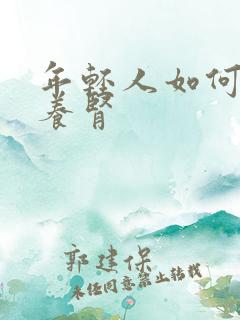 年轻人如何
养肾
郭建保
未经同意禁止转载